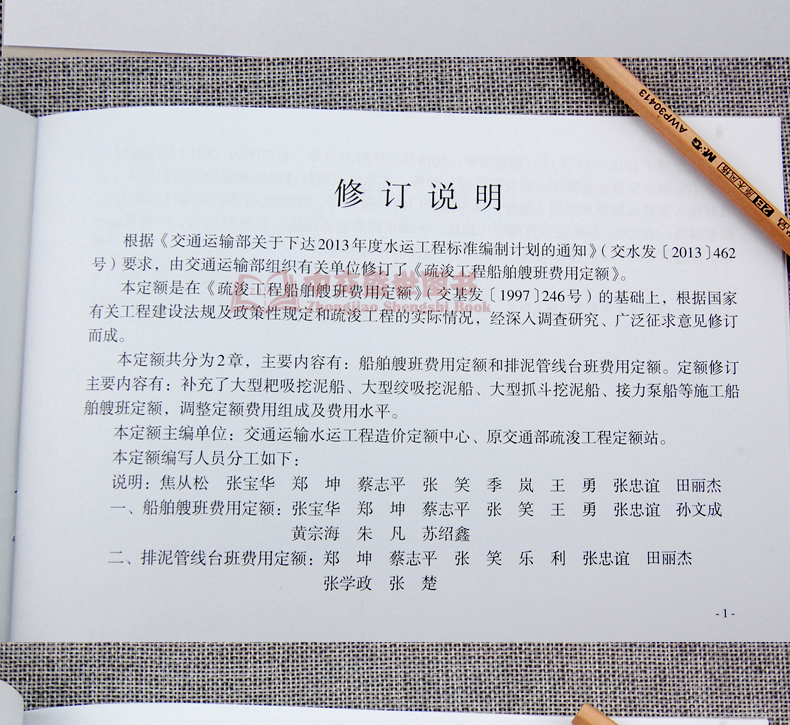 修订说明
根据《交通运输部关于下达2013年度水运工程标准编制计划的通知》(交水发〔2013〕462
号)要求，由交通运输部组织有关单位修订了《疏浚工程船舶艘班费用定额》。
本定额是在《疏浚工程船舶艘班费用定额》(交基发〔1997〕246号)的基础上，根据国家
有关工程建设法规及政策性规定和疏浚工程的实际情况，经深入调查研究、广泛征求意见修订
而成。
本定额共分为2章，主要内容有：船舶艘班费用定额和排泥管线台班费用定额。定额修订
主要内容有：补充了大型耙吸挖泥船、大型绞吸挖泥船、大型抓斗挖泥船、接力泵船等施工船
舶艘班定额，调整定额费用组成及费用水平。
本定额主编单位：交通运输水运工程造价定额中心、原交通部疏浚工程定额站。
本定额编写人员分工如下：
说明：焦从松 张宝华 郑 坤 蔡志平 张 笑 季 岚 王 勇 张忠谊 田丽杰
一、船舶艘班费用定额：张宝华 郑 坤 蔡志平 张 笑 王 勇 张忠谊 孙文成
黄宗海 朱 凡 苏绍鑫
二、排泥管线台班费用定额：郑 坤 蔡志平 张 笑 乐 利 张忠谊 田丽杰
张学政 张 楚
-1-
M&G AWP30413
2B
Zhongjiao Shengshi Book